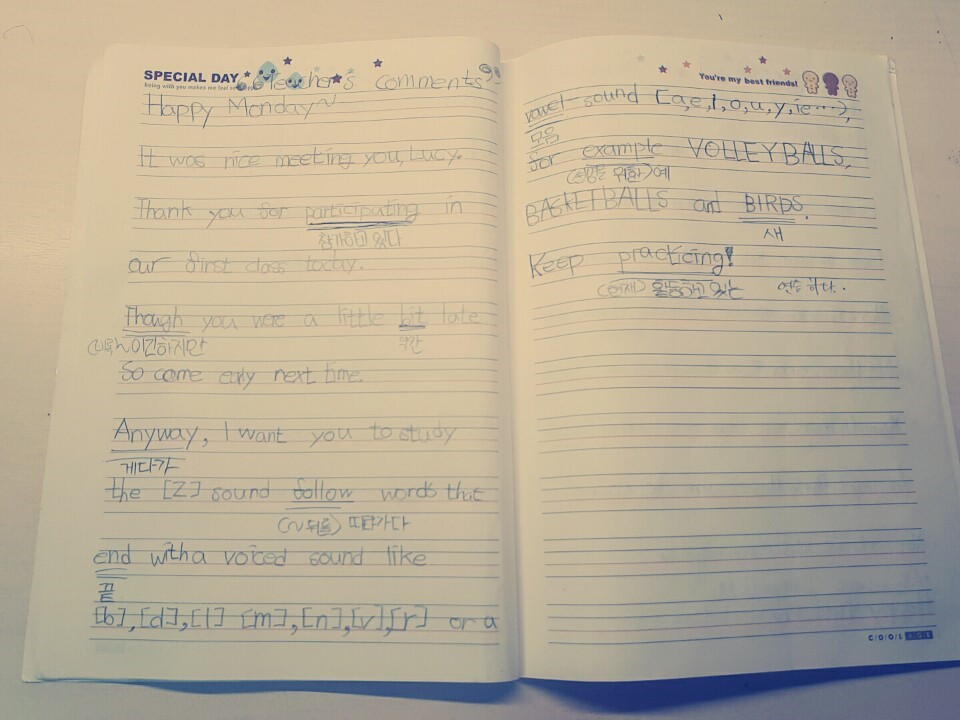 SPECIAL DAY
being with you makes me feel so
Teacher's comments
Happy Monday~
It was nice meeting you, Lucy.
Thank you for participating in
참가하고 있다
our first class today.
Though you were a little bit late
이긴하지만 약간
So come early next time.
Anyway, I want you to study
게다가
the [Z] sound follow words that
(~뒤를) 따라가다
end with a voiced sound like
끝
[b],[d],[l] [m],[n],[v],[r] or a
You're my best friends!
vowel sound [a,e,i,o,u,y,ie...),
모음
for example VOLLEYBALLS,
예
BASKETBALLS and BIRDS.
새
Keep practicing!
(현재) 활동하고 있는 연습하다..
COOL